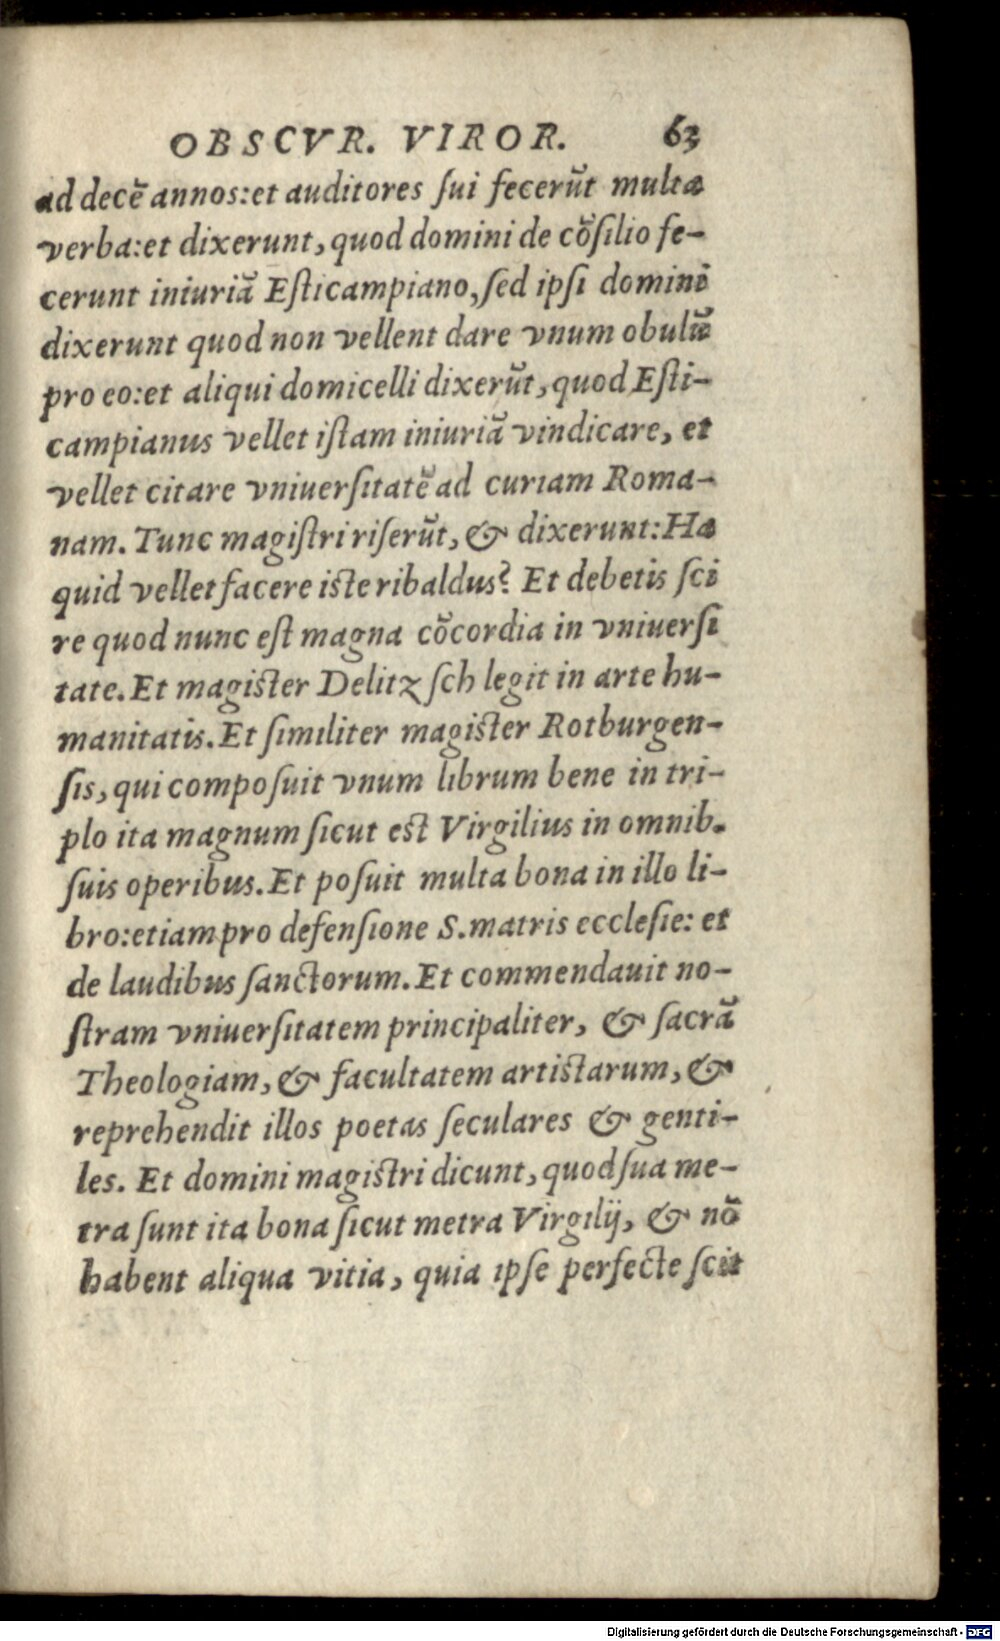 OBSCVR. VIROR. 63
ad decē annos:et auditores ſui fecerūt multa
verba:et dixerunt, quod domini de cōſilio fe-
cerunt iniuriā Eſticampiano, ſed ipſi domini
dixerunt quod non vellent dare vnum obulū
pro eo:et aliqui domicelli dixerūt, quod Eſti-
campianus vellet iſtam iniuriā vindicare, et
vellet citare vniuerſitatē ad curiam Roma-
nam. Tunc magiſtri riſerūt, & dixerunt: Ha
quid vellet facere iſte ribaldus? Et debetis ſci
re quod nunc eſt magna cōcordia in vniuerſi
tate. Et magiſter Delitzſch legit in arte hu-
manitatis. Et ſimiliter magiſter Rotburgen-
ſis, qui compoſuit vnum librum bene in tri-
plo ita magnum ſicut eſt Virgilius in omnib.
ſuis operibus. Et poſuit multa bona in illo li-
bro:etiam pro defenſione S. matris eccleſie: et
de laudibus ſanctorum. Et commendauit no-
ſtram vniuerſitatem principaliter, & ſacrā
Theologiam, & facultatem artiſtarum, &
reprehendit illos poetas ſeculares & genti-
les. Et domini magiſtri dicunt, quod ſua me-
tra ſunt ita bona ſicut metra Virgilij, & nō
habent aliqua vitia, quia ipſe perfecte ſcit
Digitalisierung gefördert durch die Deutsche Forschungsgemeinschaft - DFG